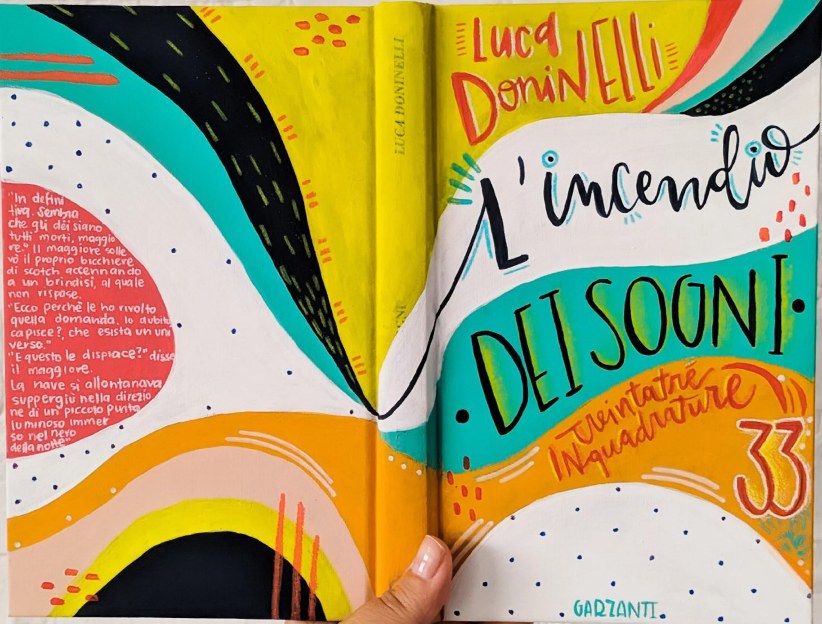 "In defini
tiva, sembra
che gli dèi siano
tutti morti, maggio
re." Il maggiore solle
vò il proprio bicchiere
di scotch accennando
a un brindisi, al quale
non rispose.
"Ecco perchè le ho rivolto
quella domanda. Io dubito,
capisce?, che esista un uni
verso."
"E questo le dispiace?" disse
il maggiore.
La nave si allontanava
suppergiù nella direzio
ne di un piccolo punto
luminoso immer
so nel nero
della notte"
LUCA DONINELLI
Luca
DoniNElli
L'incendio
DEI SOGNI
in trentatré
INquadrature
33
GARZANTI